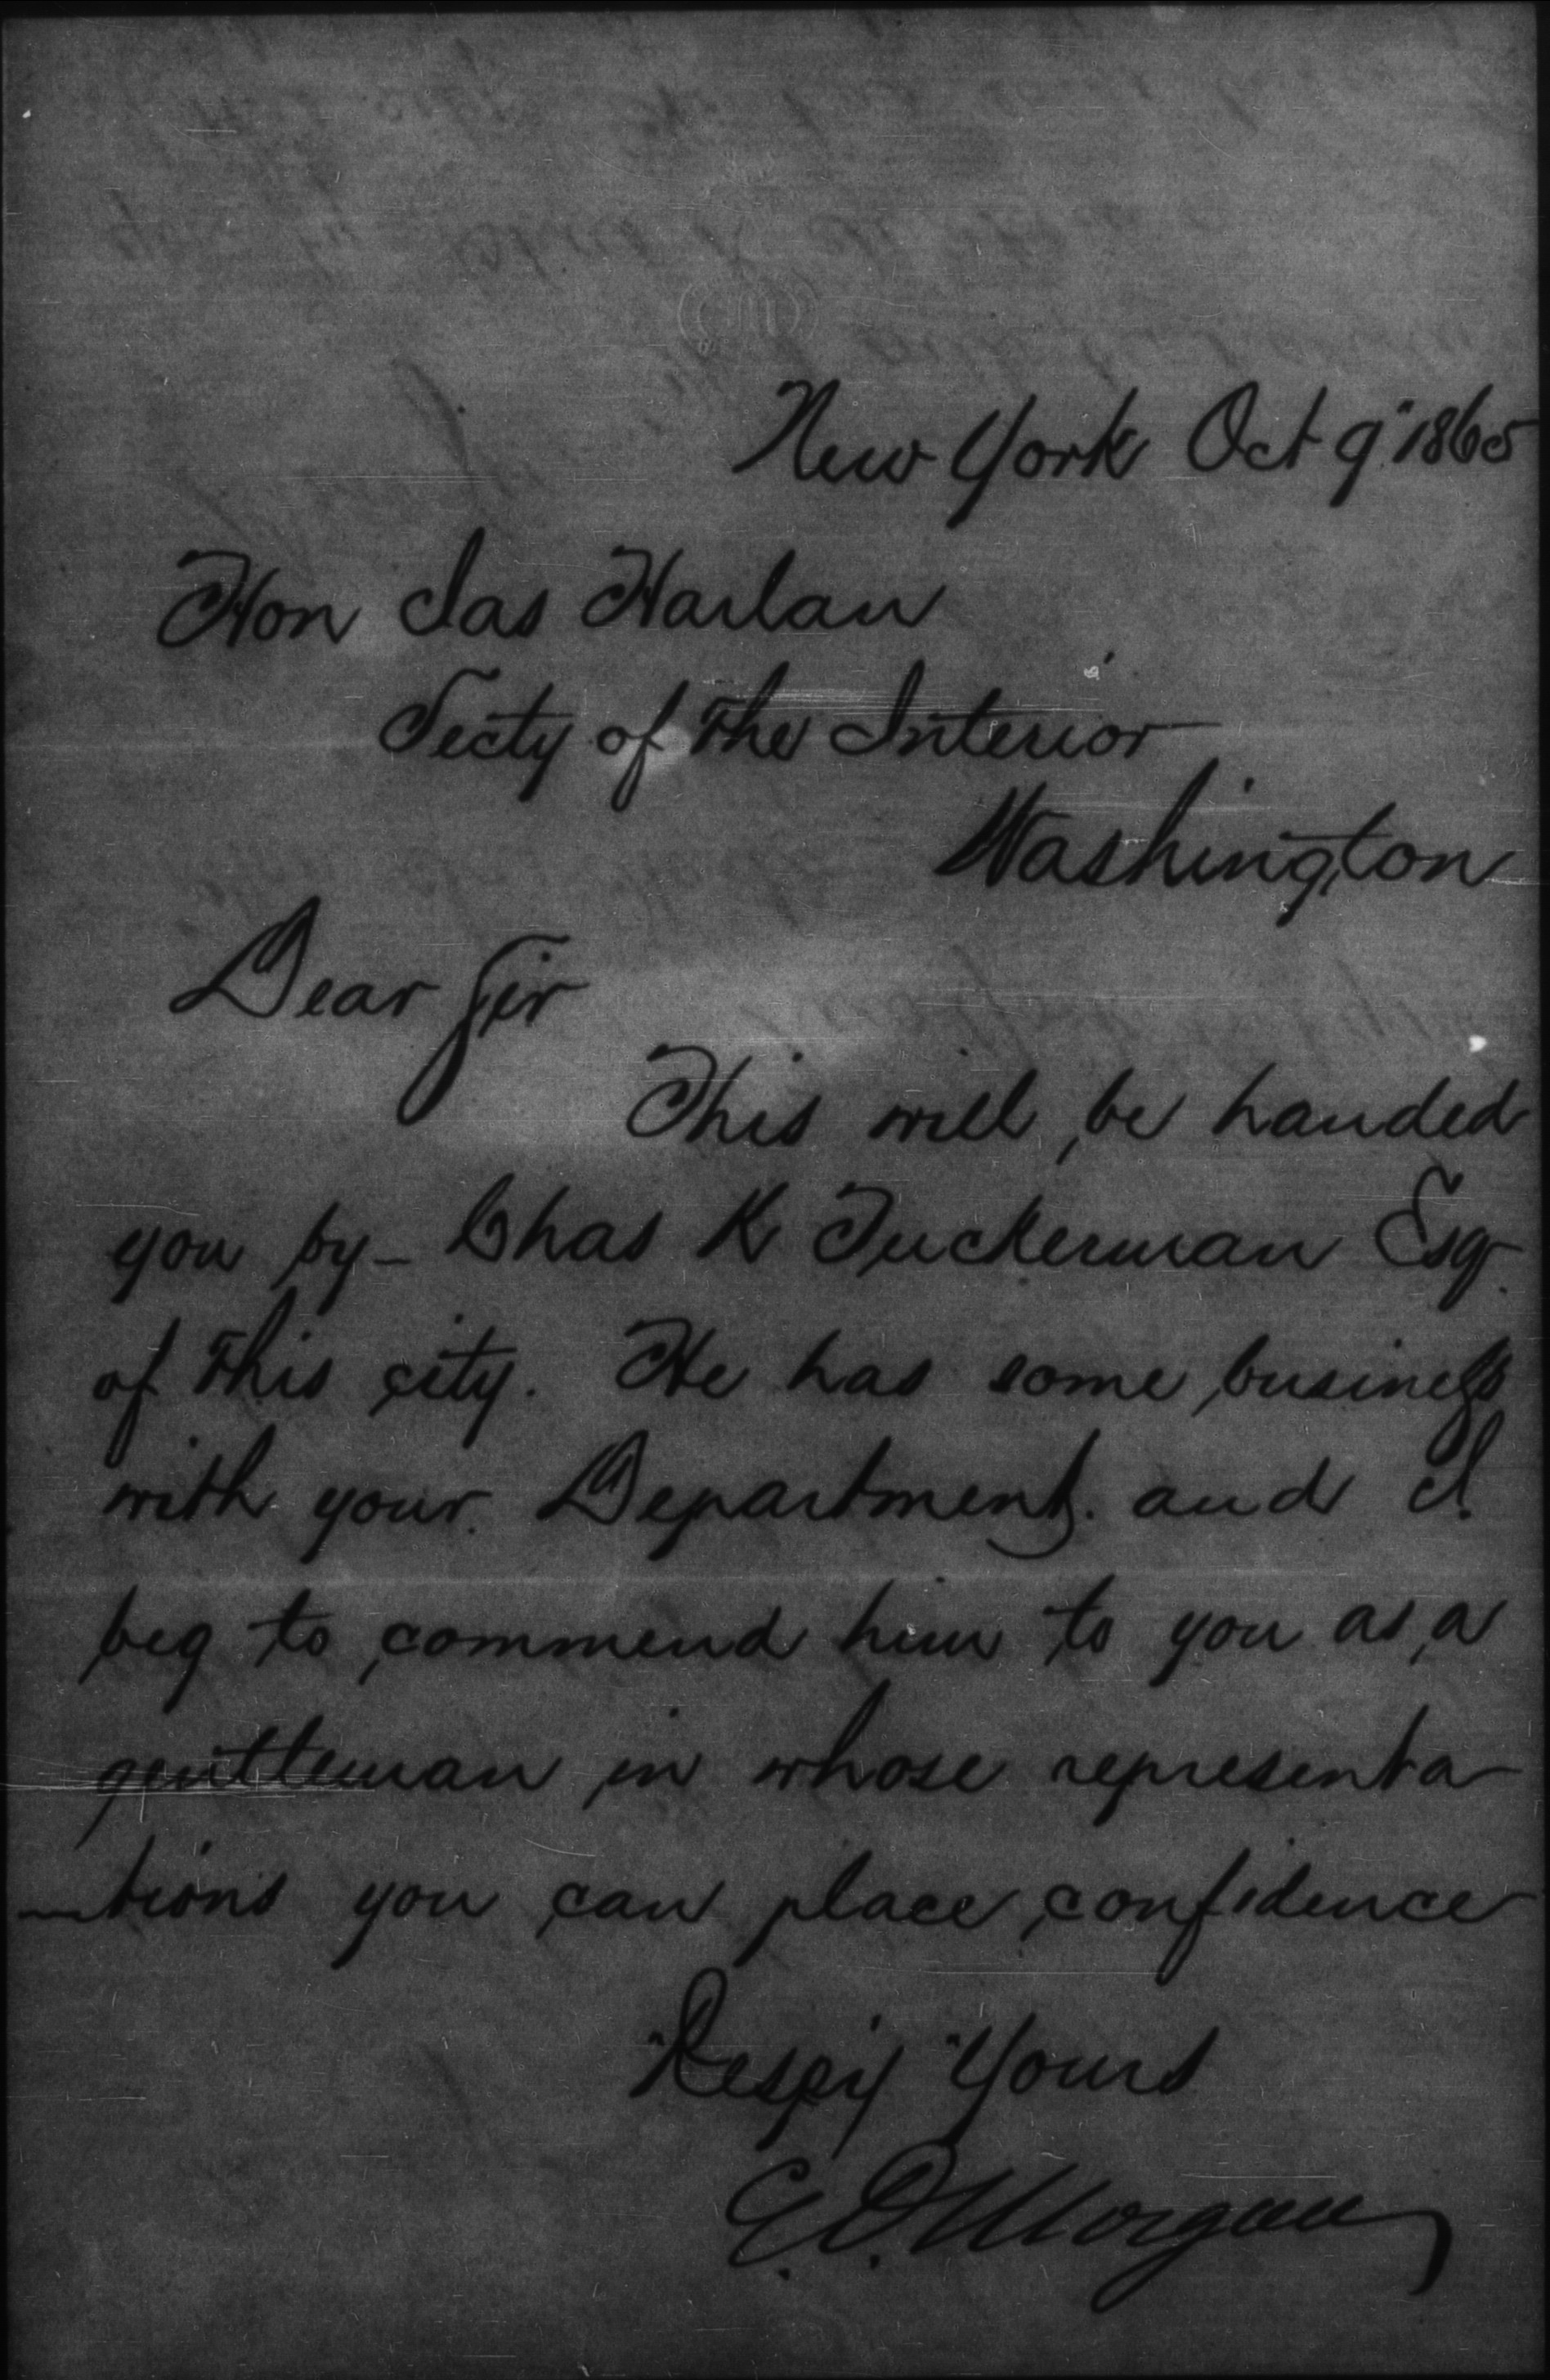 New York Oct 9" 1865
Hon Jas Harlan
Secty of the Interior
Washington
Dear Sir
This will be handed
you by - Chas K Tuckerman Esq.
of this city. He has some business
with your Department. and I.
beg to commend him to you as a
gentleman in whose representa
tions you can place confidence
Respy Yours
E. D. Morgan